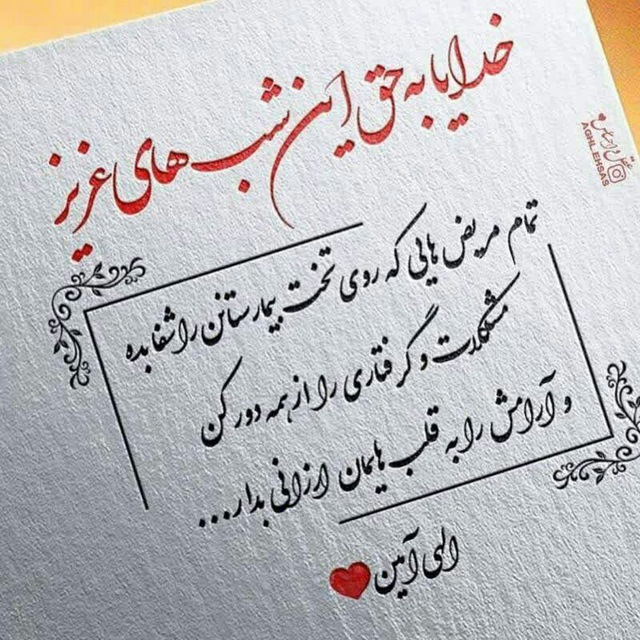 خدایا به حق این شب های عزیز
عقل و احساس
AGHLEHSAS
تمام مریض هایی که روی تخت بیمارستانن را شفا بده
مشکلات و گرفتاری را از همه دور کن
و آرامش را به قلب هایمان ارزانی بدار...
الهی آمین